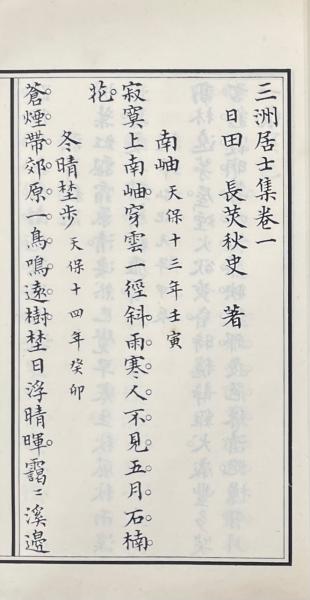 三洲居士集卷一
日田 長炗秋史 著
南岫 天保十三年壬寅
寂寞上南岫。穿雲一徑斜。雨寒人不見。五月石楠
花。
冬晴埜步 天保十四年癸卯
蒼煙帶郊原。一鳥鳴遠樹。埜日浮晴暉。靄〻溪邊